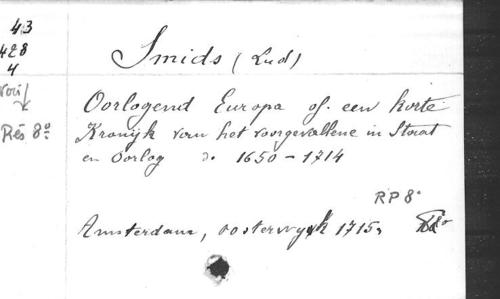 43
428
4
voir
Rés 8º
Smids (Lud)
Oorlogend Europa of een korte
Kronijk van het voorgevallene in Staat
en Oorlog 1650-1714
RP 8º
Amsterdam, Oosterwyk 1715,